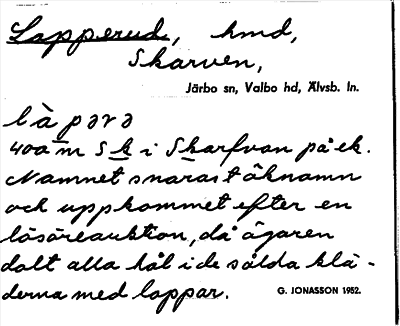 Lapperud, hmd,
Skarven,
Järbo sn, Valbo hd, Älvsb. ln.
là pərə
400 m S k i Skarfvan på ek.
Namnet snarast öknamn
och uppkommet efter en
lösöreauktion, då ägaren
dolt alla hål i de sålda klä-
derna med lappar.
G. JONASSON 1952.